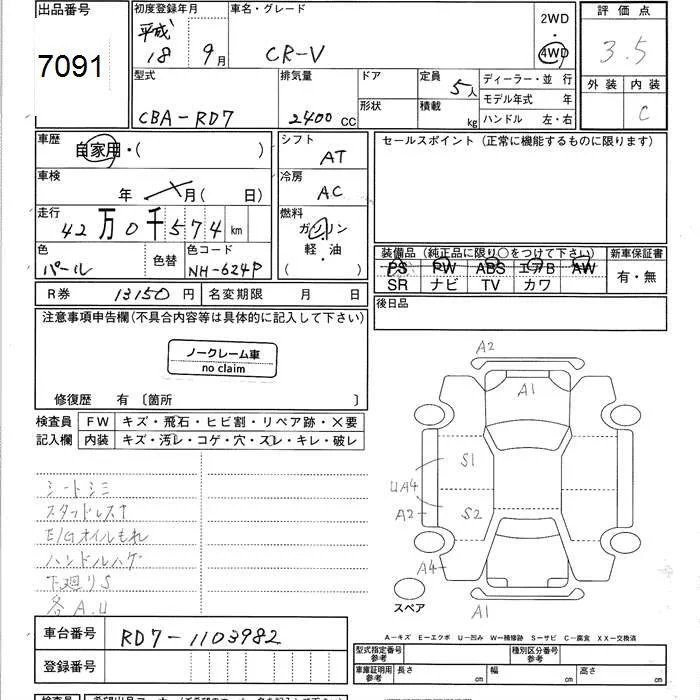 出品番号
7091
初度登録年月
平成
18 9月
車名・グレード
CR-V
2WD
・
4WD
評価点
3.5
外装 内装
C
型式
CBA-RD7
排気量
2400 CC
ドア
形状
定員 5人
積載 kg
ディーラー・並 行
モデル年式 年
ハンドル 左・右
車歴
自家用・( )
車検
年 月( 日)
走行
42万0千574 km
色
パール
色替
色コード
NH-624P
シフト
AT
冷房
AC
燃料
ガソリン
軽・油
( )
セールスポイント (正常に機能するものに限ります)
装備品 (純正品に限り○をつけて下さい)
PS PW ABS エアB AW
SR ナビ TV カワ
新車保証書
有・無
後日品
R券 13150円 名変期限 月 日
注意事項申告欄(不具合内容等は具体的に記入して下さい)
ノークレーム車
no claim
修復歴 有 〔箇所 〕
検査員
記入欄
FW キズ・飛石・ヒビ割・リペア跡・×要
内装 キズ・汚レ・コゲ・穴・スレ・キレ・破レ
シートシミ
スタッドレス
E/Gオイルもれ
ハンドルハゲ
下廻りS
各A.U
A2
A1
S1
UA4
A2
S2
A4
A1
スペア
A－キズ E－エクボ U－凹み W－補修跡 S－サビ C－腐食 XX－交換済
車台番号 RD7-1103982
登録番号
型式指定番号
参考
種別区分番号
参考
車庫証明用
参考
長さ cm 幅 cm 高さ cm